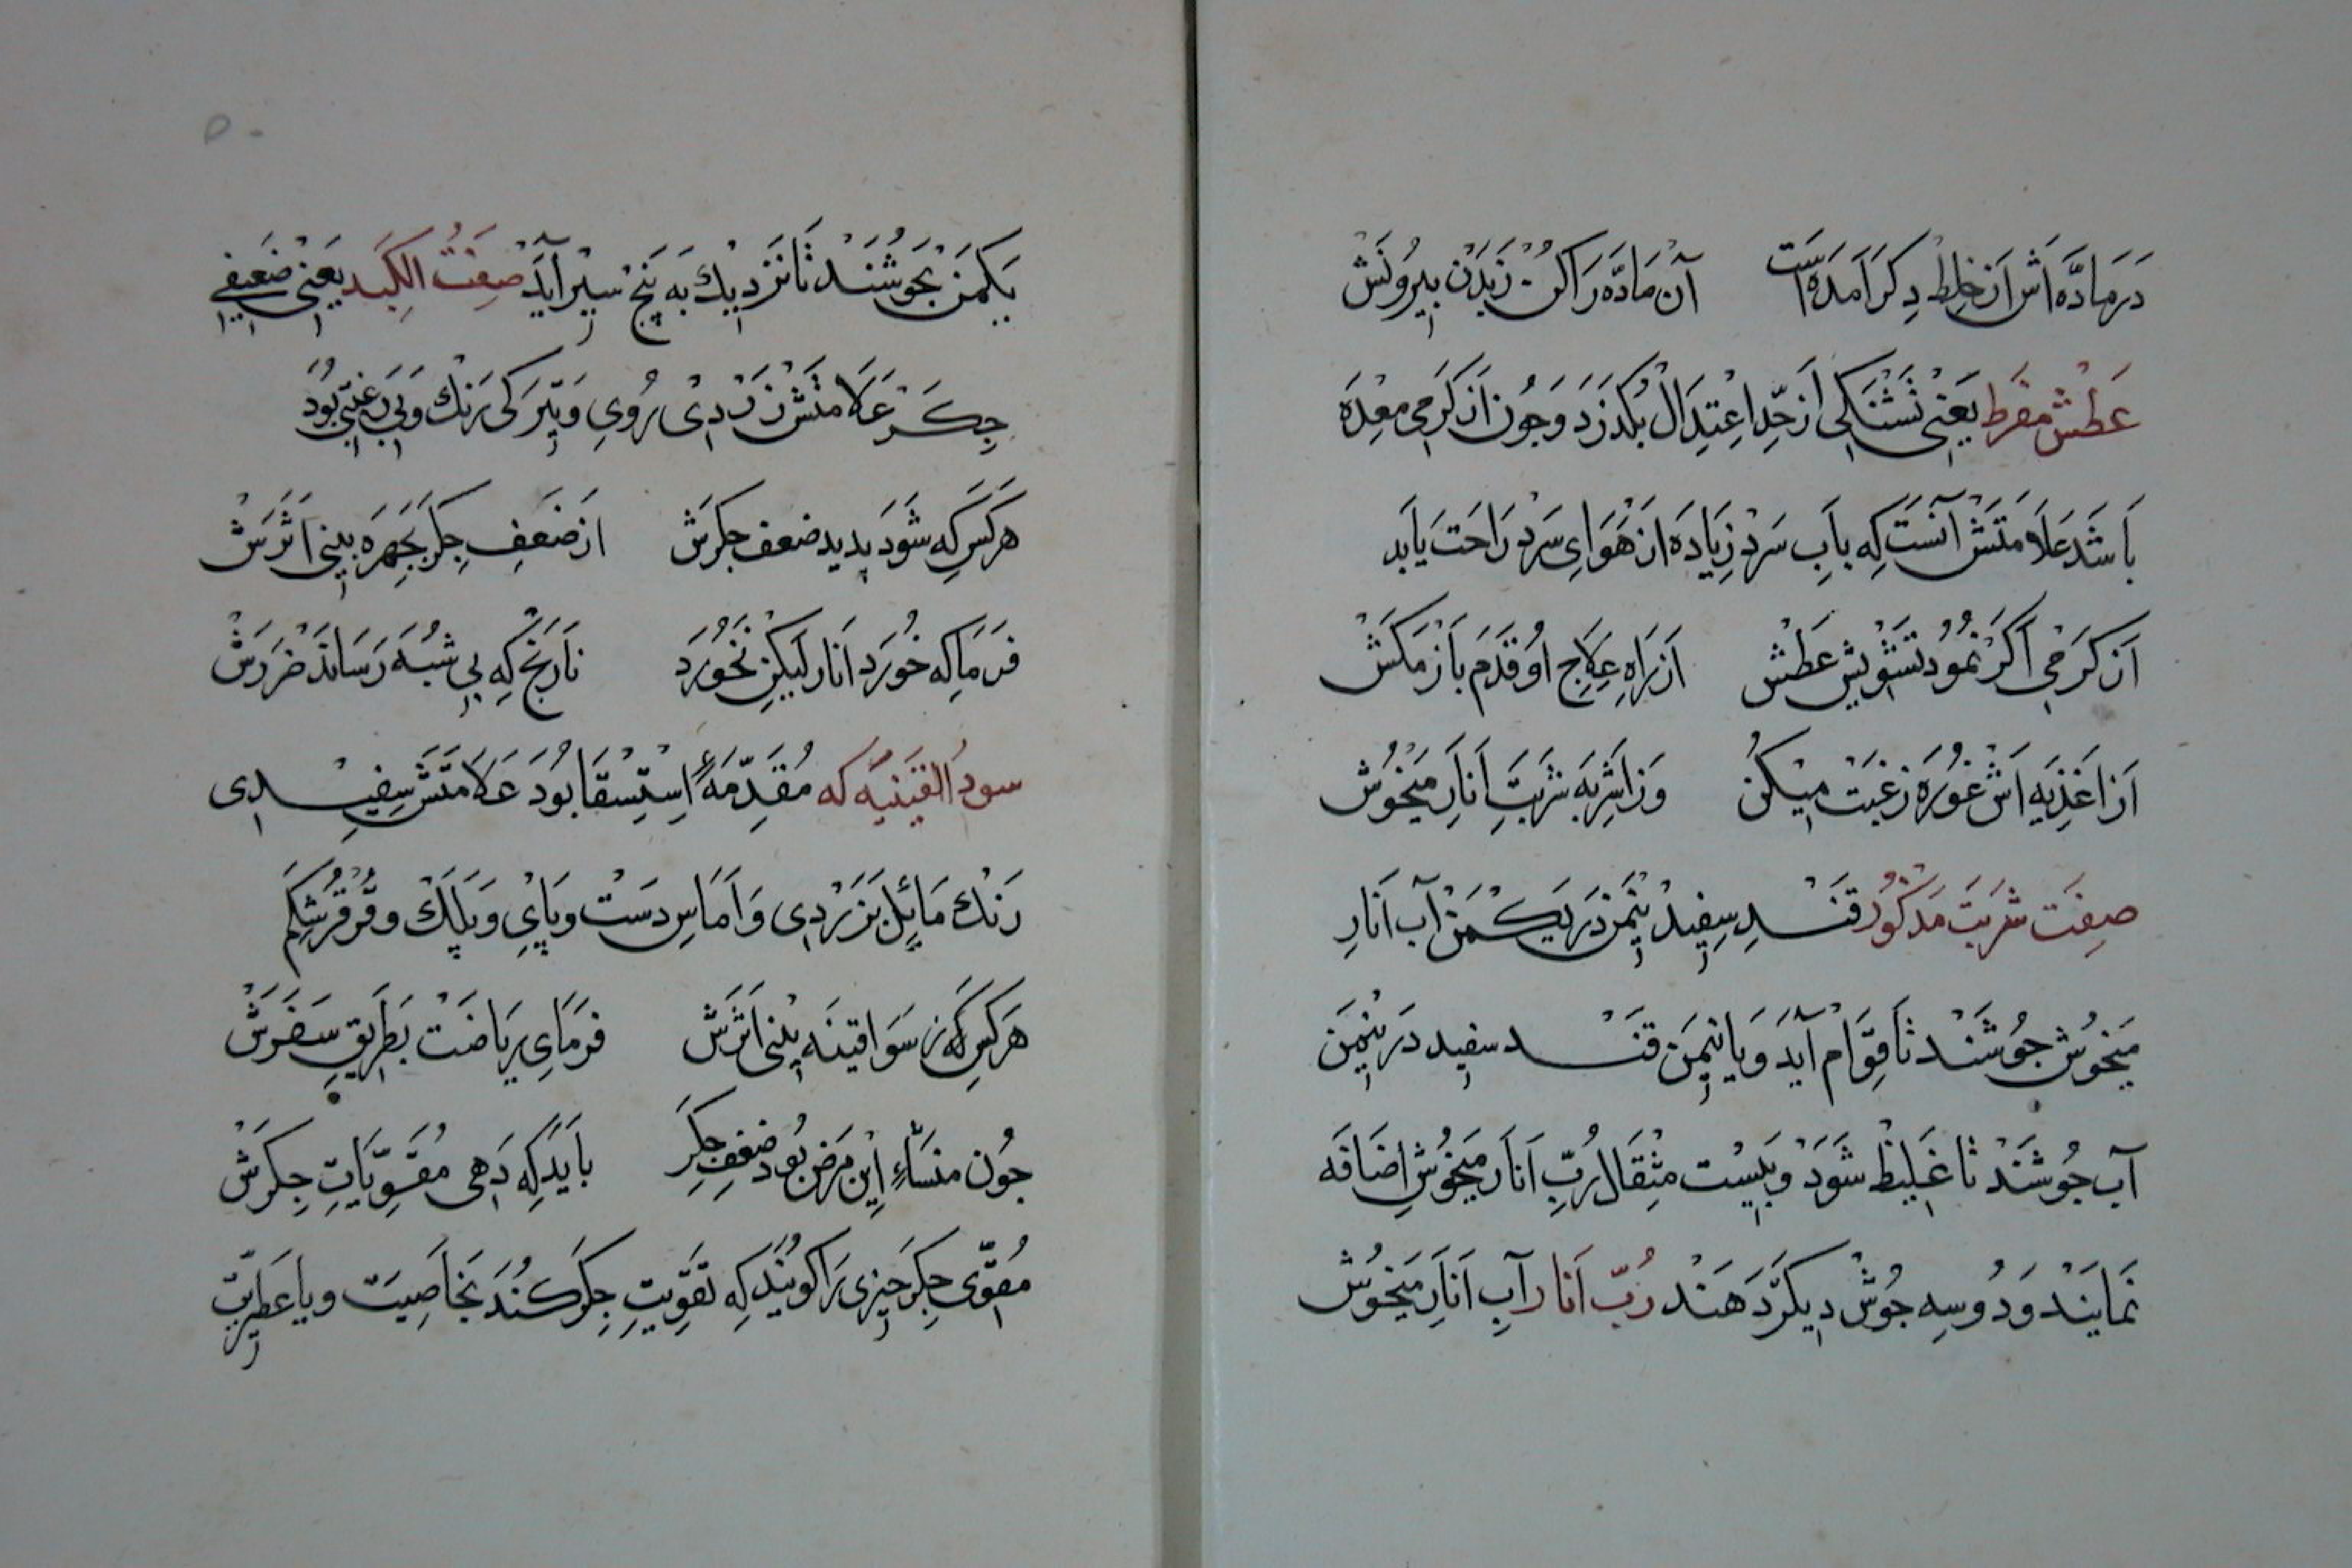 در مادّه اش از خلط دکر آمده است آن مادّه را کن ز بدن بیرونش
عطش مفرط یعنی تشنکی از حدّ اعتدال بکذرد و جون از کرمی معده
باشد علامتش آنست که باب سرد زیاده از هوای سرد راحت یابد
از کرمی اکر نمود تشویش عطش از راه علاج او قدم باز مکش
از اغذیه اش غوره رغبت میکن وز اشربه شربت انار میخوش
صفت شربت مذکور قند سفید نیمن در یکمن آب انار
میخوش جوشند تا قوام آید و یا نیمن قند سفید در نیمن
آب جوشند تا غلیظ شود و بیست مثقال ربّ انار میخوش اضافه
نمایند و دو سه جوش دیکر دهند ربّ انار آب انار میخوش
یکمن بجوشند تا نزدیك به پنج سیر آید صفت الکبد یعنی ضعیفی
جکر علامتش زردی روی و تیرکی رنك و بی رغبتی بود
هر کس که شود پدید ضعف جکرش از ضعف جکر بجهره بینی اثرش
فرما که خورد انار لیکن نخورد نارنج که بی شبه رساند ضررش
سوء القینیه که مقدّمهٔ استسقا بود علامتش سفیدی
رنك مائل بزردی و آماس دست و پای و پلك و قرقر شکم
هر کس که ز سوا قینه بینی اثرش فرمای ریاضت بطریق سفرش
جون منساء این مرض بود ضعف جکر باید که دهی مقوّیات جکرش
مقوّی جکر جیزی را کویند که تقویت جکر کند بخاصیت و یا عطریّت
۵۰